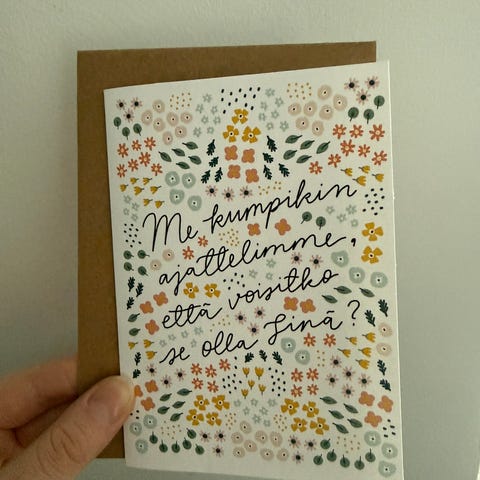 Me kumpikin
ajattelimme,
että voisitko
se olla Sinä?